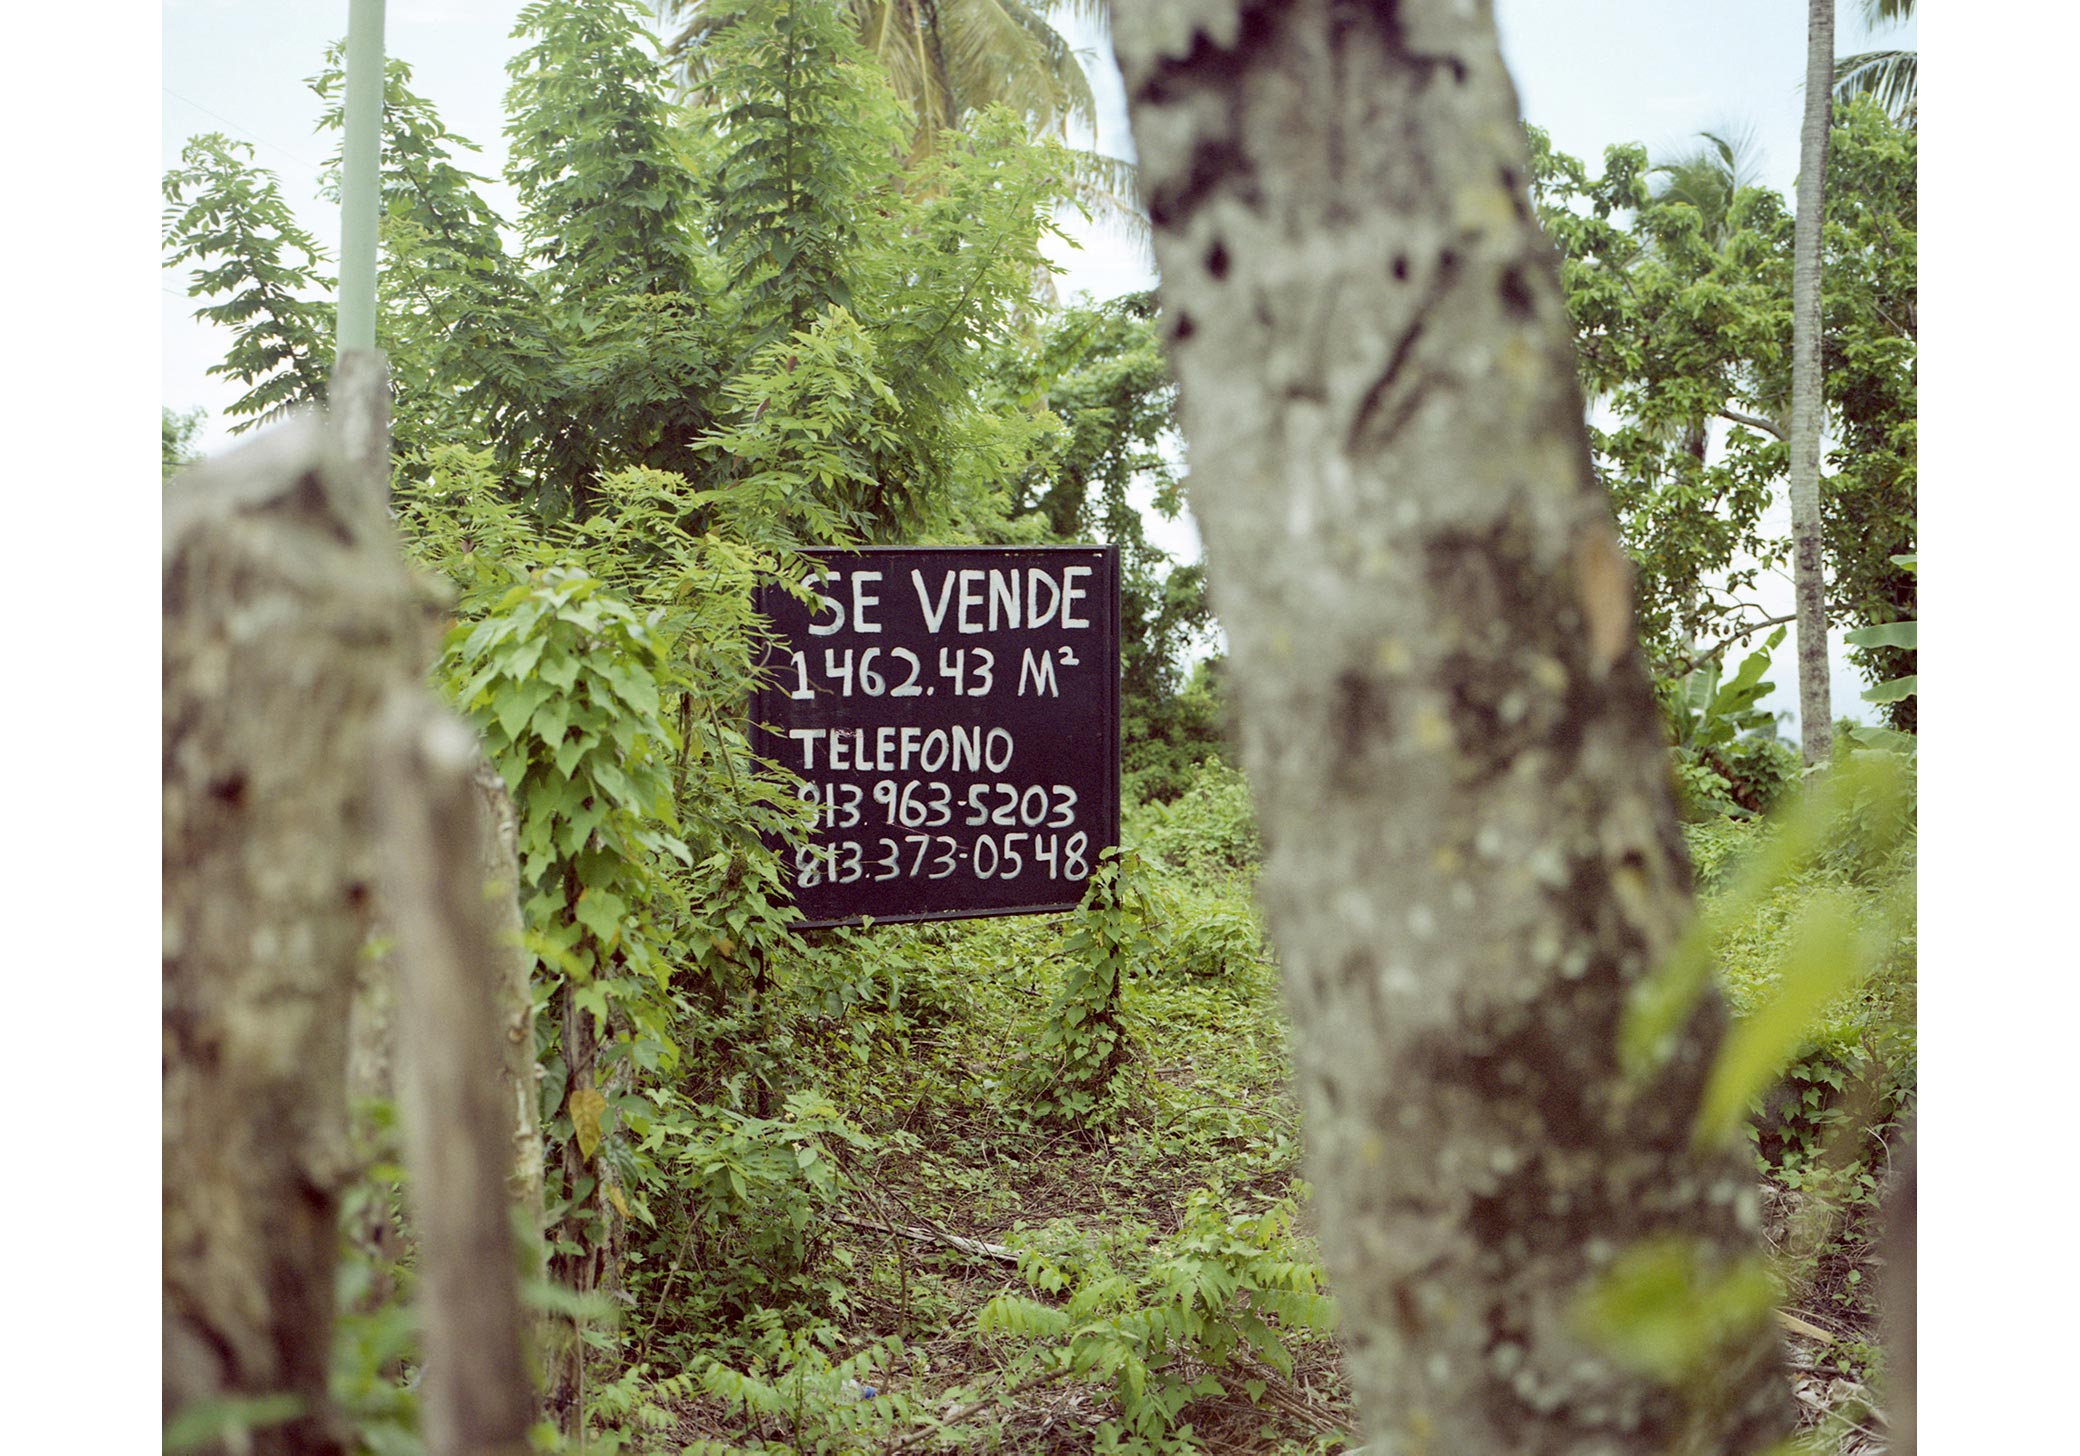 SE VENDE
1462.43 M²
TELEFONO
813.963-5203
813.373-0548